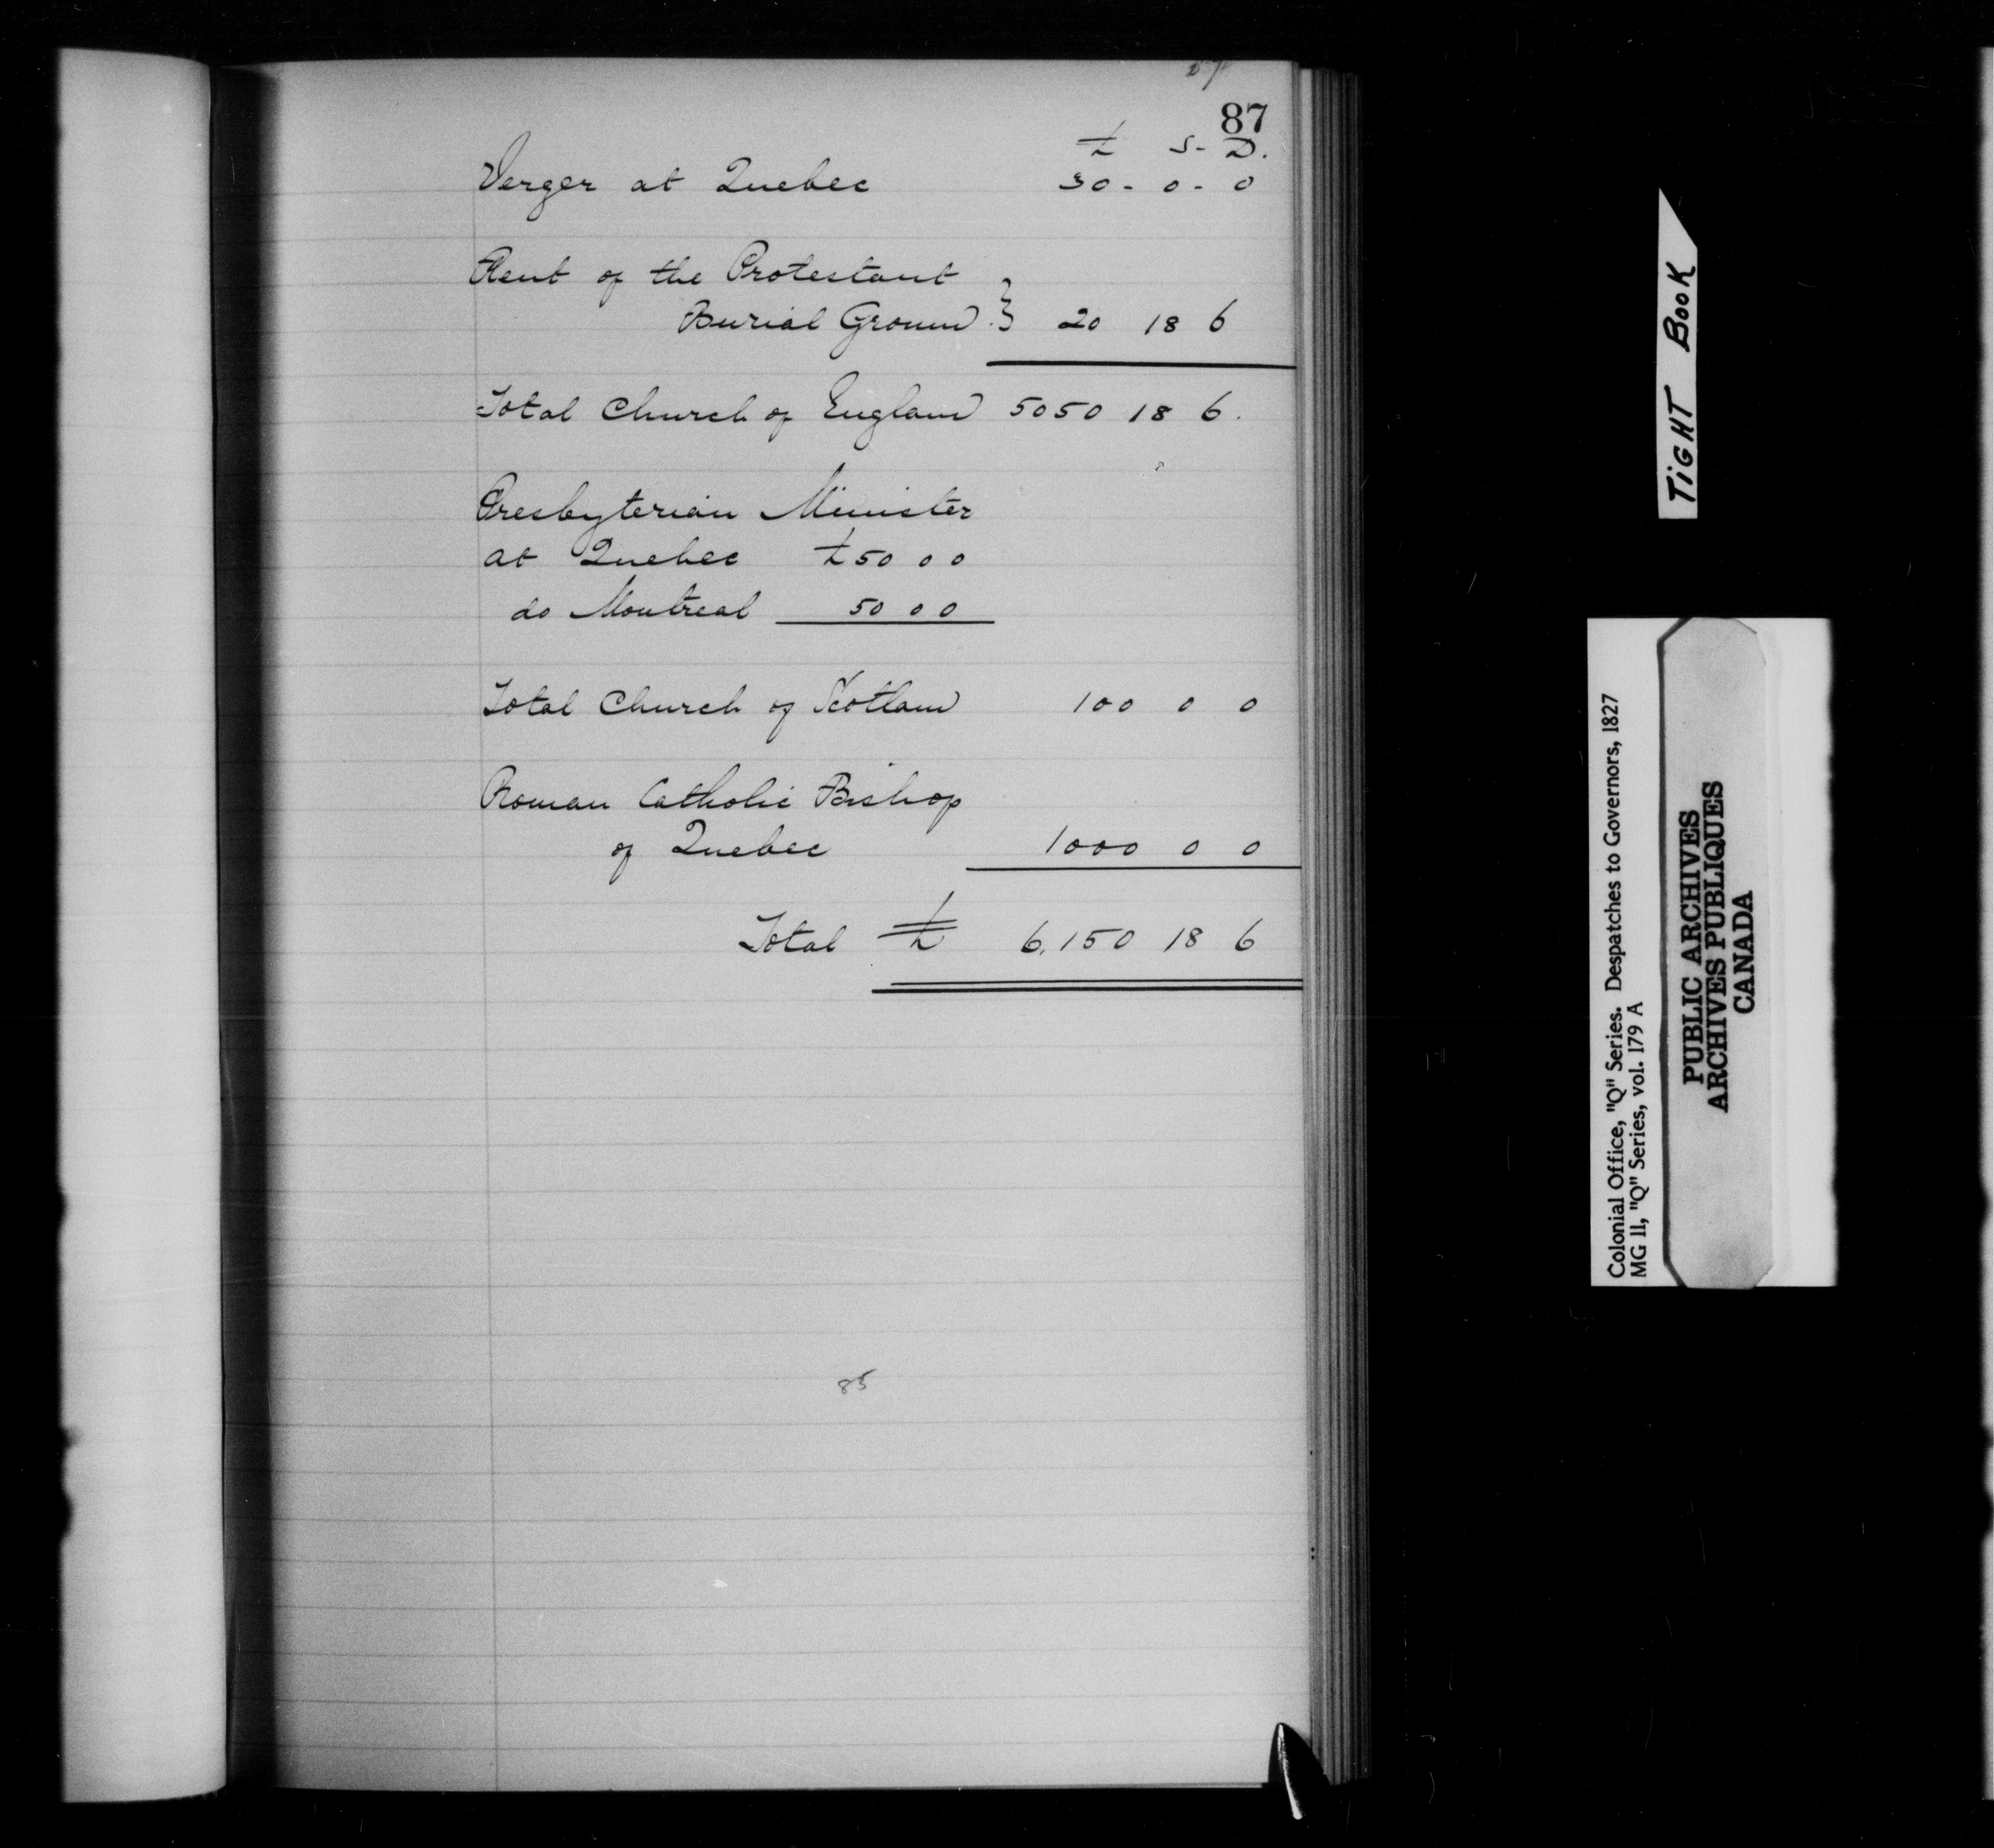 87
£ S- D.
Verger at Quebec 30 - 0 - 0
Rent of the Protestant
Burial Ground } 20 18 6
Total Church of England 5050 18 6.
Presbyterian Minister
at Quebec £50 0 0
do Montreal 50 0 0
Total Church of Scotland 100 0 0
Roman Catholic Bishop
of Quebec 1000 0 0
Total £ 6,150 18 6
85
TiGHT BOOK
Colonial Office, "Q" Series. Despatches to Governors, 1827
MG 11, "Q" Series, vol. 179 A
PUBLIC ARCHIVES
ARCHIVES PUBLIQUES
CANADA